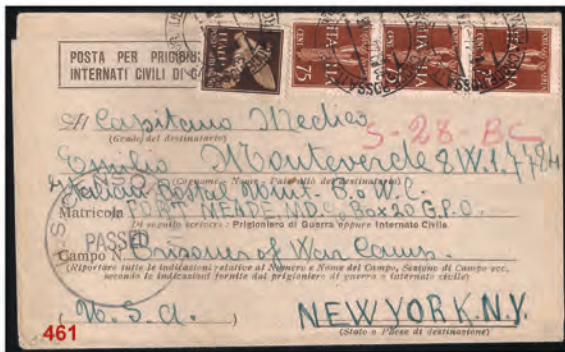 POSTA PER PRIGIONIERI
INTERNATI CIVILI DI G
ITALIA
CENT. 75
ITALIA
CENT. 75
ITALIA
Al Capitano Medico
(Grado del destinatario)
S-28 BC
Emilio Monteverde 8W.I.7784
(Cognome - Nome - Paternità del destinatario)
Italian Postal Unit. B.o W.C.
Matricola FORT MEADE, MD. Co Box 20 G.P.O.
Di seguito scrivere: Prigioniero di Guerra oppure Internato Civile
PASSED
Campo N. Prisoners of War Camp.
(Riportare tutte le indicazioni relative al Numero e Nome del Campo, Sezione di Campo ecc. secondo le indicazioni fornite dal prigioniero di guerra o internato civile)
(U.S.A.) NEW YORK. N.Y.
(Stato o Paese di destinazione)
461